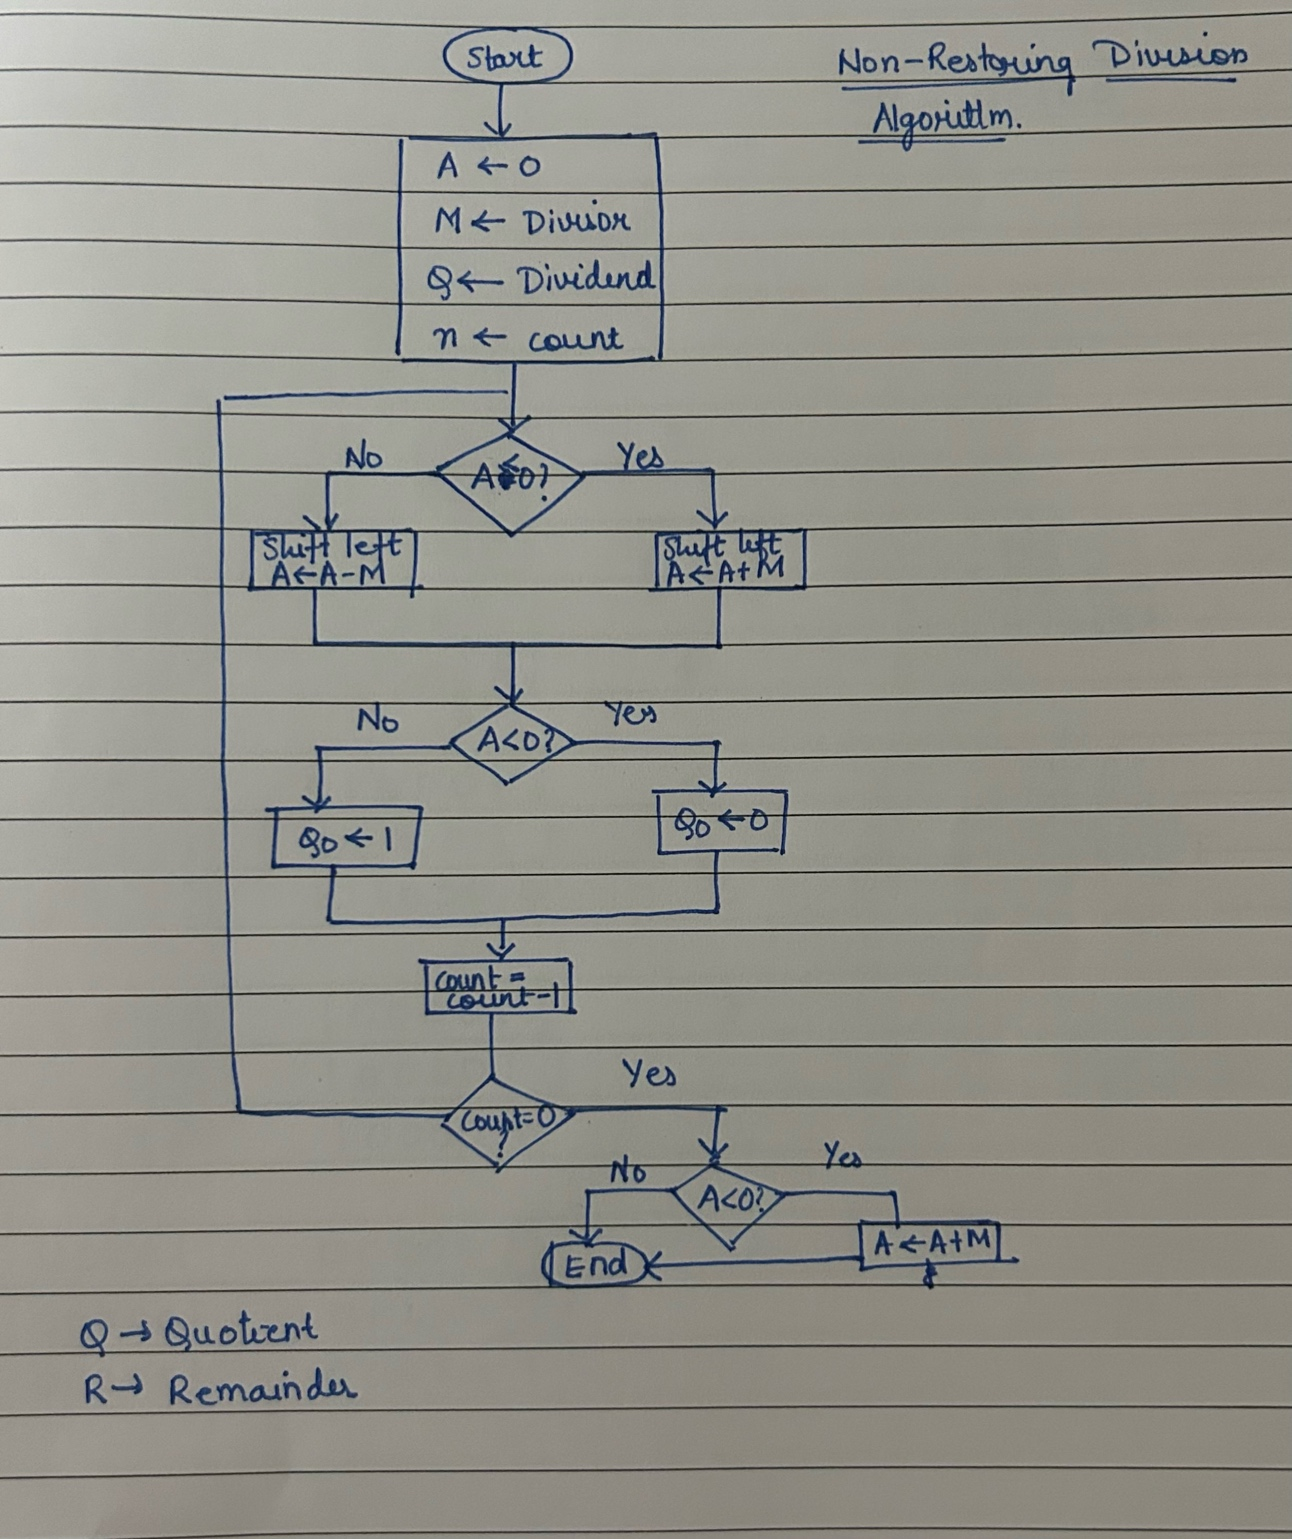 Start
Non-Restoring Division
Algorithm.
A ← 0
M ← Divisor
Q ← Dividend
n ← count
No
Yes
A<0?
Shift left
A←A-M
Shift left
A←A+M
No
Yes
A<0?
Q0 ← 1
Q0 ← 0
count =
count-1
Yes
count=0
?
No
Yes
A<0?
A ← A+M
End
Q → Quotient
R → Remainder